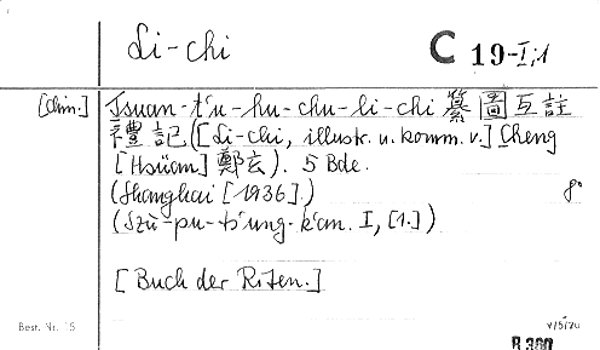 Li-chi
C 19-I,1
[Chin.] Tsuan-t'u-hu-chu-li-chi 纂圖互註
禮記 ([Li-chi, illustr. u. komm. v.] Cheng
[Hsüan] 鄭玄). 5 Bde.
(Shanghai [1936].) 8°
(Szŭ-pu-ts'ung-k'an. I, [1.])
[Buch der Riten.]
Best. Nr. 15
V/5/20